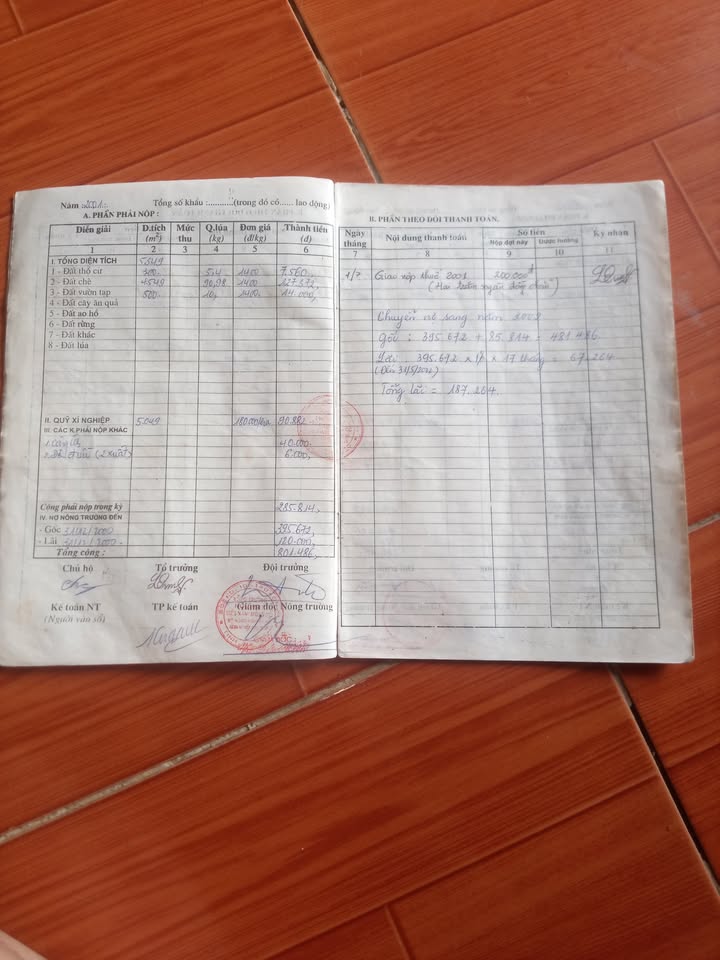 Năm 2001. Tổng số khẩu :..........(trong đó có...... lao động)
A. PHẦN PHẢI NỘP :
Diễn giải D.tích (m²) Mức thu Q.lúa (kg) Đơn giá (đ/kg) Thành tiền (đ)
1 2 3 4 5 6
I. TỔNG DIỆN TÍCH 5.549
1 - Đất thổ cư 300. 5,4 1400 7.560,
2 - Đất chè 4549 90,98 1400 127.372,
3 - Đất vườn tạp 500. 10, 1400. 14.000,
4 - Đất cây ăn quả
5 - Đất ao hồ
6 - Đất rừng
7 - Đất khác
8 - Đất lúa
II. QUỸ XÍ NGHIỆP 5.049 180.000/ha 90.882
III. CÁC K.PHẢI NỘP KHÁC
40.000.
6.000,
Cộng phải nộp trong kỳ 285.814,
IV. NỢ NÔNG TRƯỜNG ĐẾN
- Gốc 31/12/2000 395.672,
- Lãi 31/12/2000. 120.000,
Tổng cộng : 801.486,
Chủ hộ Tổ trưởng Đội trưởng
Kế toán NT TP kế toán Giám đốc Nông trường
(Người vào sổ)
B. PHẦN THEO DÕI THANH TOÁN.
Ngày tháng Nội dung thanh toán Số tiền Ký nhận
Nộp đợt này Được hưởng
7 8 9 10 11
1/2 Giao nộp thuế 2001 200.000đ
(Hai trăm ngàn đồng chẵn)
Chuyển nợ sang năm 2002
Gốc : 395.672 + 85.814 = 481.486.
Lãi 395.672 x 1% x 17 tháng = 67.264
(Đến 31/5/2002)
Tổng lãi = 187.264.